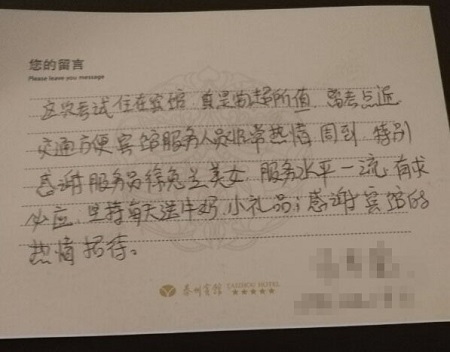 您的留言
Please leave you message
这次考试住在宾馆,真是物超所值,离考点近
交通方便宾馆服务人员非常热情、周到,特别
感谢服务员徐兔兰美女,服务水平一流,有求
必应,坚持每天送牛奶、小礼品;感谢宾馆的
热情招待。
泰州宾馆 TAIZHOU HOTEL
★★★★★